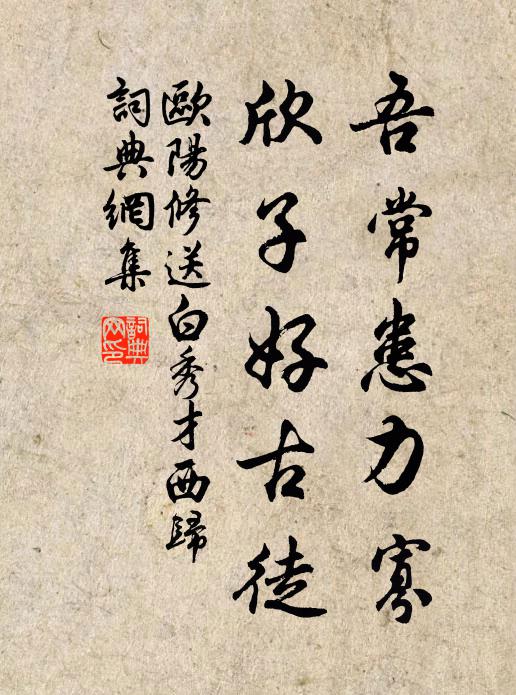 吾常患力寡
欣子好古徒
歐陽修送白秀才西歸
詞典網集
詞典網印